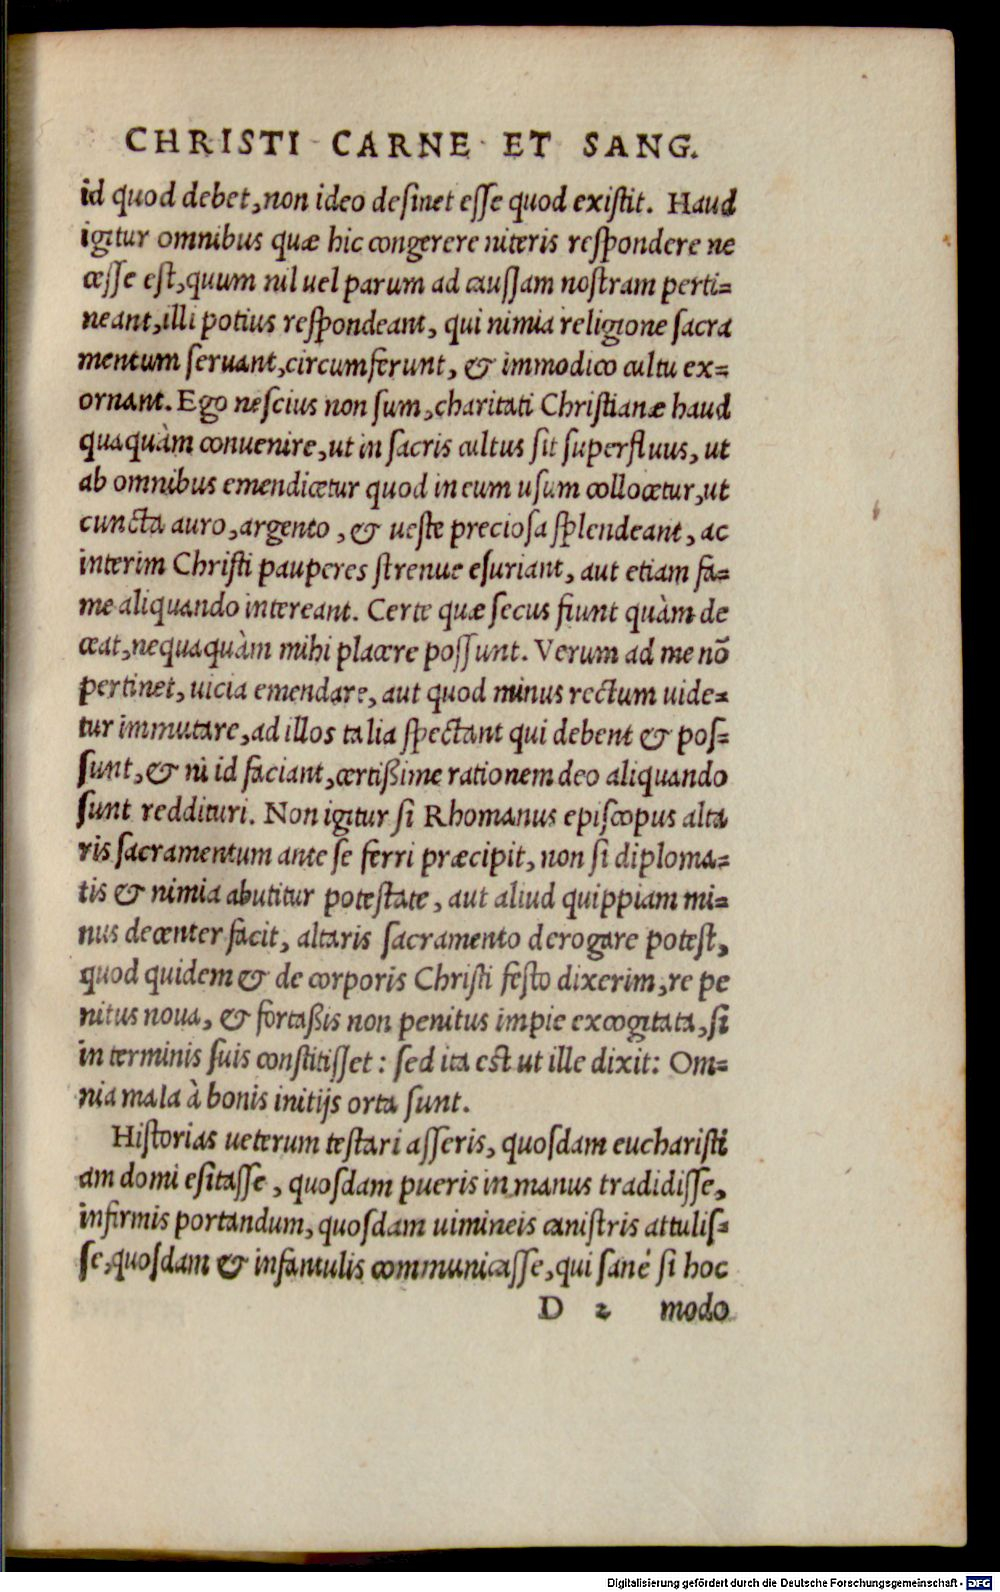 CHRISTI CARNE ET SANG.
id quod debet, non ideo desinet esse quod existit. Haud
igitur omnibus quæ hic congerere niteris respondere ne
cesse est, quum nil uel parum ad caussam nostram perti=
neant, illi potius respondeant, qui nimia religione sacra
mentum seruant, circumferunt, & immodico cultu ex=
ornant. Ego nescius non sum, charitati Christianæ haud
quaquàm conuenire, ut in sacris cultus sit superfluus, ut
ab omnibus emendicetur quod in eum usum collocetur, ut
cuncta auro, argento, & ueste preciosa splendeant, ac
interim Christi pauperes strenue esuriant, aut etiam fa=
me aliquando intereant. Certe quæ secus fiunt quàm de
ceat, nequaquàm mihi placere possunt. Verum ad me nõ
pertinet, uicia emendare, aut quod minus rectum uide=
tur immutare, ad illos talia spectant qui debent & pos=
sunt, & ni id faciant, certißime rationem deo aliquando
sunt reddituri. Non igitur si Rhomanus episcopus alta
ris sacramentum ante se ferri præcipit, non si diploma=
tis & nimia abutitur potestate, aut aliud quippiam mi=
nus decenter facit, altaris sacramento derogare potest,
quod quidem & de corporis Christi festo dixerim, re pe
nitus noua, & fortaßis non penitus impie excogitata, si
in terminis suis constitisset: sed ita est ut ille dixit: Om=
nia mala à bonis initijs orta sunt.
Historias ueterum testari asseris, quosdam eucharisti
am domi esitasse, quosdam pueris in manus tradidisse,
infirmis portandum, quosdam uimineis canistris attulis=
se, quosdam & infantulis communicasse, qui sané si hoc
D 2 modo
Digitalisierung gefördert durch die Deutsche Forschungsgemeinschaft - DFG